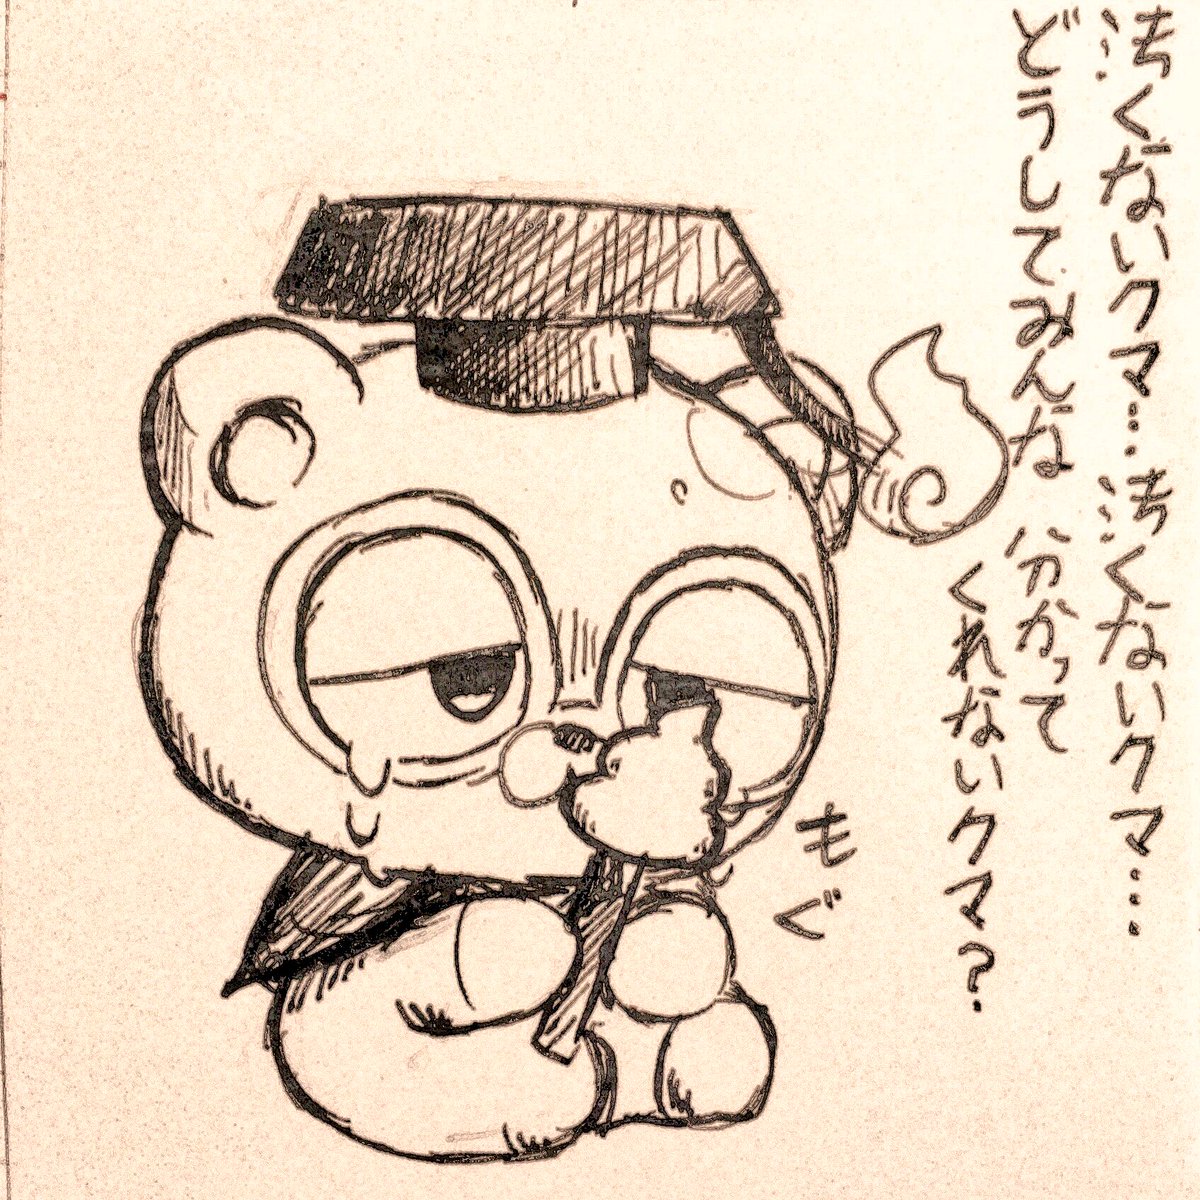 汚くないクマ…汚くないクマ…
どうしてみんな分かって
くれないクマ?
もぐ